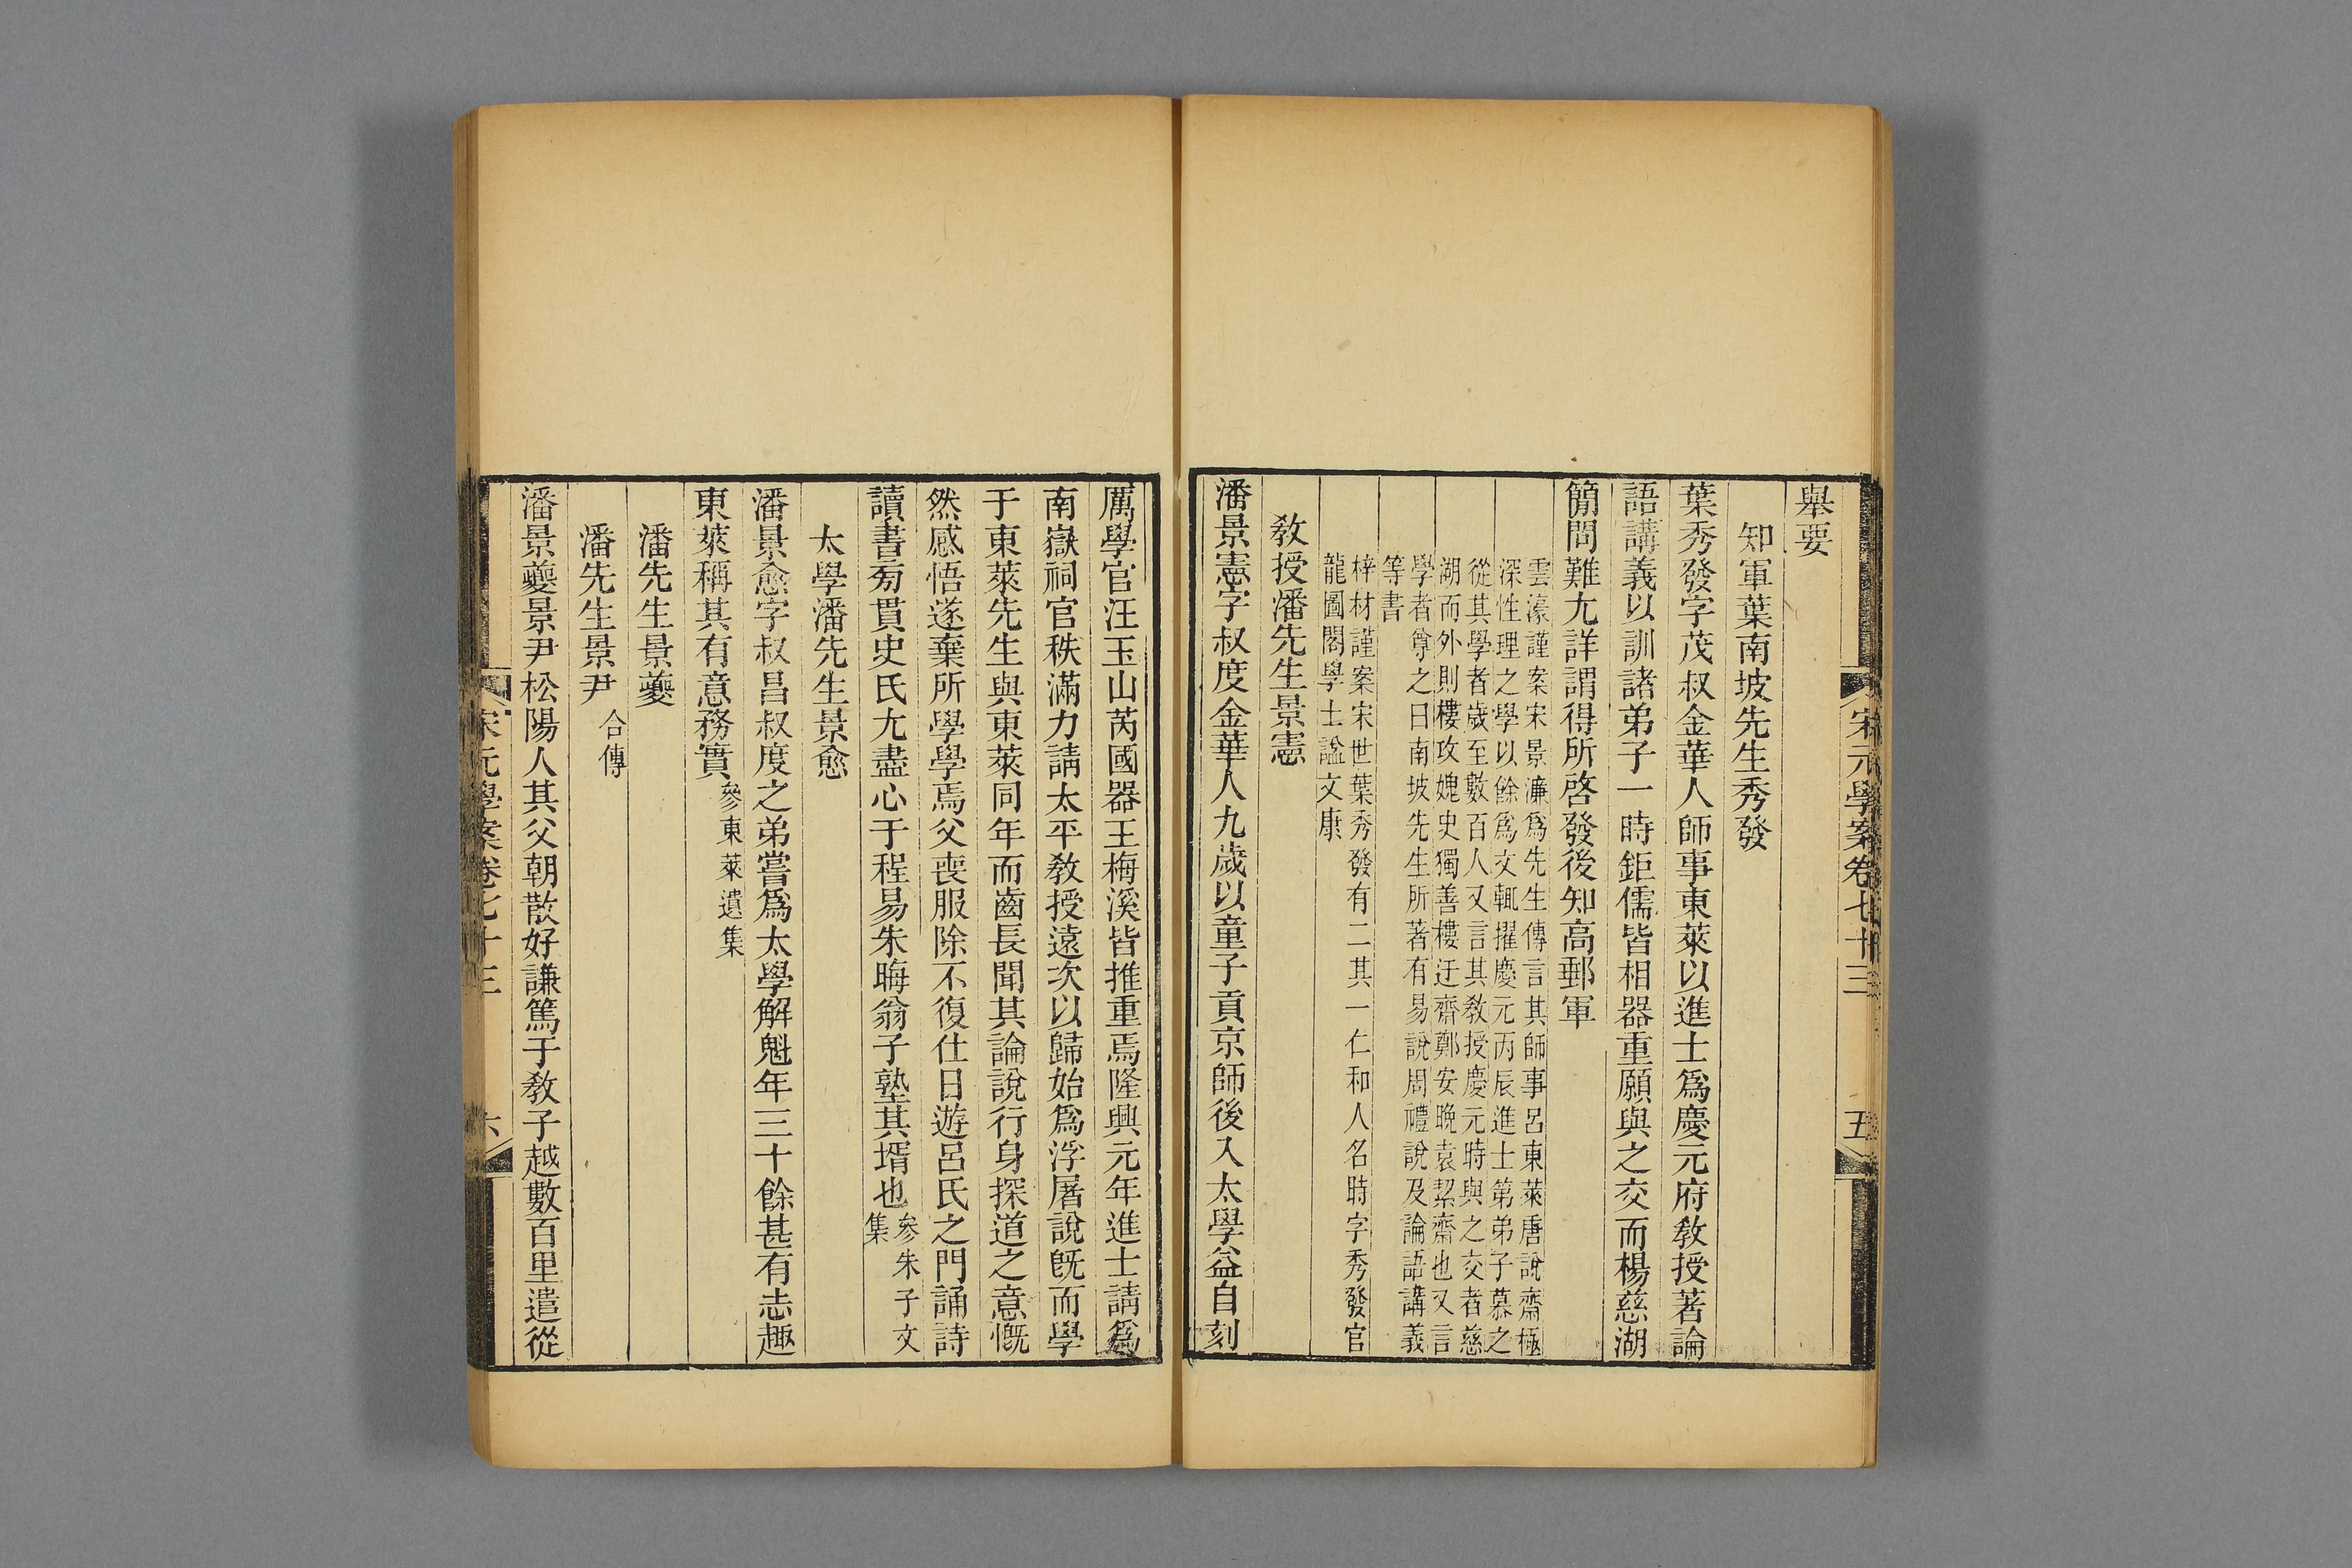 宋元學案卷七十三
五
舉要
知軍葉南坡先生秀發
葉秀發字茂叔金華人師事東萊以進士爲慶元府敎授著論
語講義以訓諸弟子一時鉅儒皆相器重願與之交而楊慈湖
簡問難尤詳謂得所啓發後知高郵軍
雲濠謹案宋景濂爲先生傳言其師事呂東萊唐說齋極
深性理之學以餘爲文輒擢慶元丙辰進士第弟子慕之
從其學者歲至數百人又言其敎授慶元時與之交者慈
湖而外則樓攻媿史獨善樓迂齋鄭安晚袁絜齋也又言
學者尊之曰南坡先生所著有易說周禮說及論語講義
等書
梓材謹案宋世葉秀發有二其一仁和人名時字秀發官
龍圖閣學士諡文康
敎授潘先生景憲
潘景憲字叔度金華人九歲以童子貢京師後入太學益自刻
厲學官汪玉山芮國器王梅溪皆推重焉隆興元年進士請爲
南嶽祠官秩滿力請太平敎授遠次以歸始爲浮屠說旣而學
于東萊先生與東萊同年而齒長聞其論說行身探道之意慨
然感悟遂棄所學學焉父喪服除不復仕日遊呂氏之門誦詩
讀書旁貫史氏尤盡心于程易朱晦翁子塾其壻也參朱子文
集
太學潘先生景愈
潘景愈字叔昌叔度之弟嘗爲太學解魁年三十餘甚有志趣
東萊稱其有意務實參東萊遺集
潘先生景夔
潘先生景尹合傳
潘景夔景尹松陽人其父朝散好謙篤于敎子越數百里遣從
宋元學案卷七十三
六